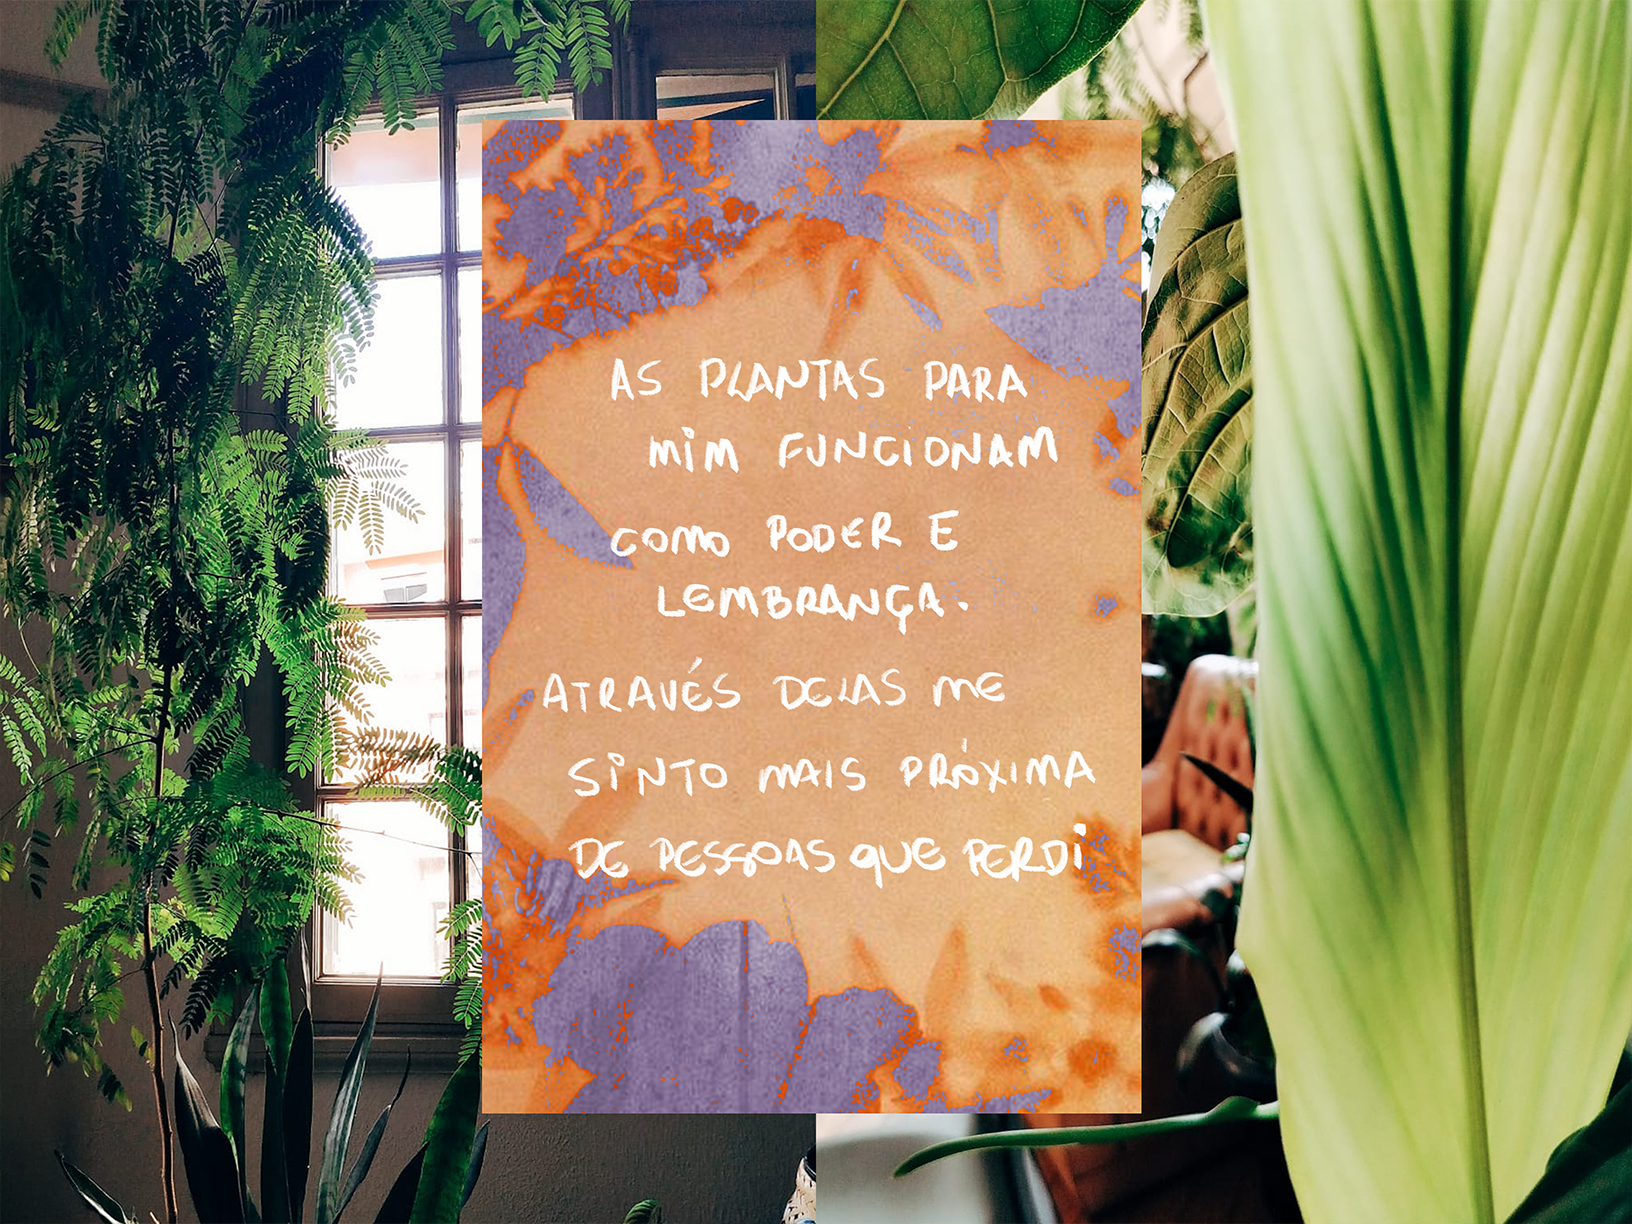 AS PLANTAS PARA
MIM FUNCIONAM
COMO PODER E
LEMBRANÇA.
ATRAVÉS DELAS ME
SINTO MAIS PRÓXIMA
DE PESSOAS QUE PERDI